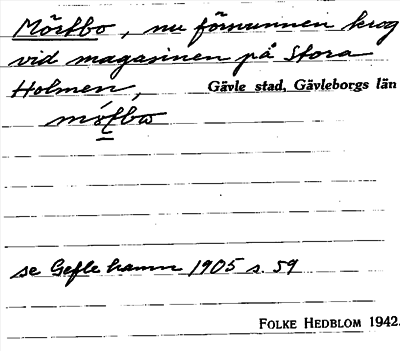 Mörtbo, nu försvunnen krog
vid magasinen på Stora
Holmen,
Gävle stad, Gävleborgs län
se Gefle hamn 1905 s. 59
FOLKE HEDBLOM 1942.